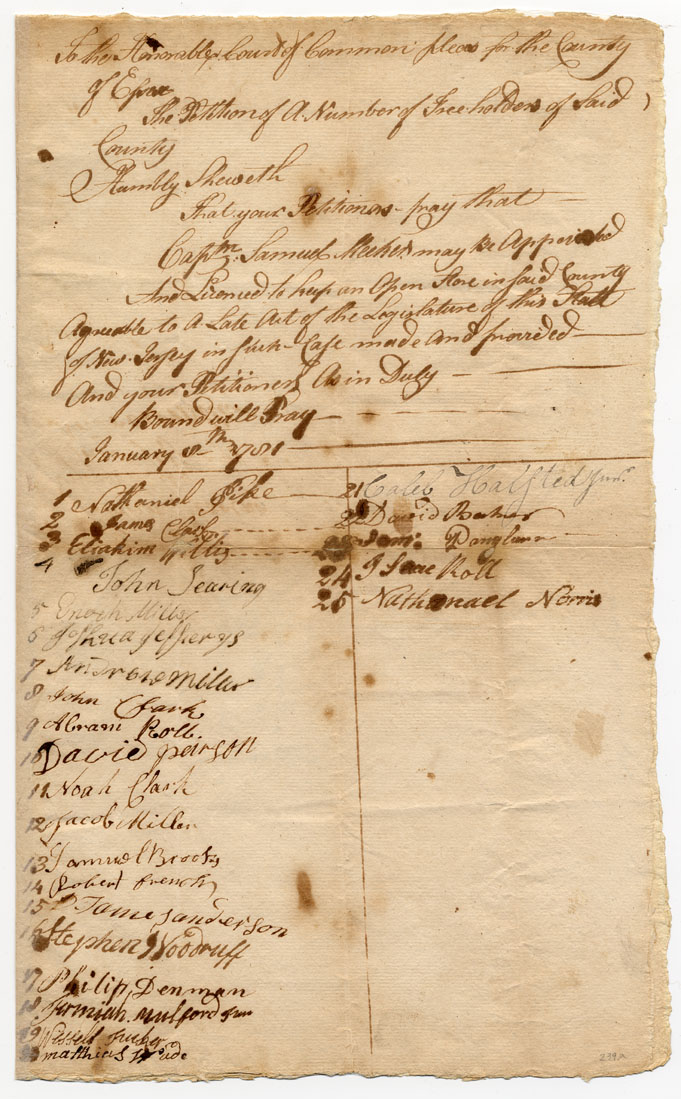 To the Honorable Court of Common pleas for the County
of Essex
The Petition of A Number of Freeholders of Said
County
Humbly Sheweth
That your Petitioners pray that
Captn. Samuel Meeker may be Appointed
And Licenced to keep an Open Store in said County
Agreable to A Late Act of the Legislature of this State
of New Jersey in such Case made and provided
And your Petitioners As in Duty
Bound will Pray
January 8th 1781
1 Nathaniel Pike
2 James Clark
3 Eliakim Willis
4 John Searing
5 Enoch Miller
6 Joshua Jefferys
7 Andrew Miller
8 John Clark
9 Abram Roll
10 David pearson
11 Noah Clark
12 Jacob Miller
13 Samuel Brooks
14 Robert french
15 James Sanderson
16 Stephen Woodruff
17 Philip Denman
18 Jermiah mulford Jun
19
20 matthias
21 Caleb Halsted Junr.
22 David Baker
23
24 Isaac Roll
25 Nathanael Norris
239A